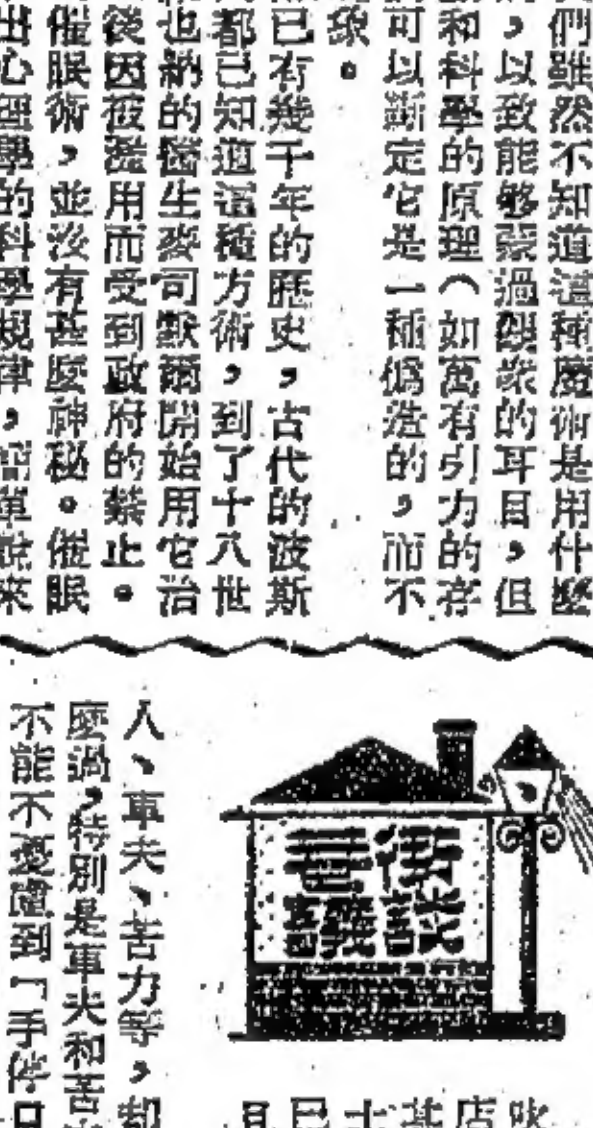 們雖然不知道這種魔術是用什麼
，以致能够蒙過觀衆的耳目，但
和科學的原理（如萬有引力的存
可以斷定它是一種僞造的，而不
象。
已有幾千年的歷史，古代的波斯
都已知道這種方術，到了十八世
也納的醫生麥司默爾開始用它治
後因被濫用而受到政府的禁止。
催眠術，並沒有甚麼神秘。催眠
出心理學的科學規律，簡單說來
街談
巷議
人、車夫、苦力等，却
麼過，特別是車夫和苦
不能不憂慮到「手停口
店
甚
士
巴
且